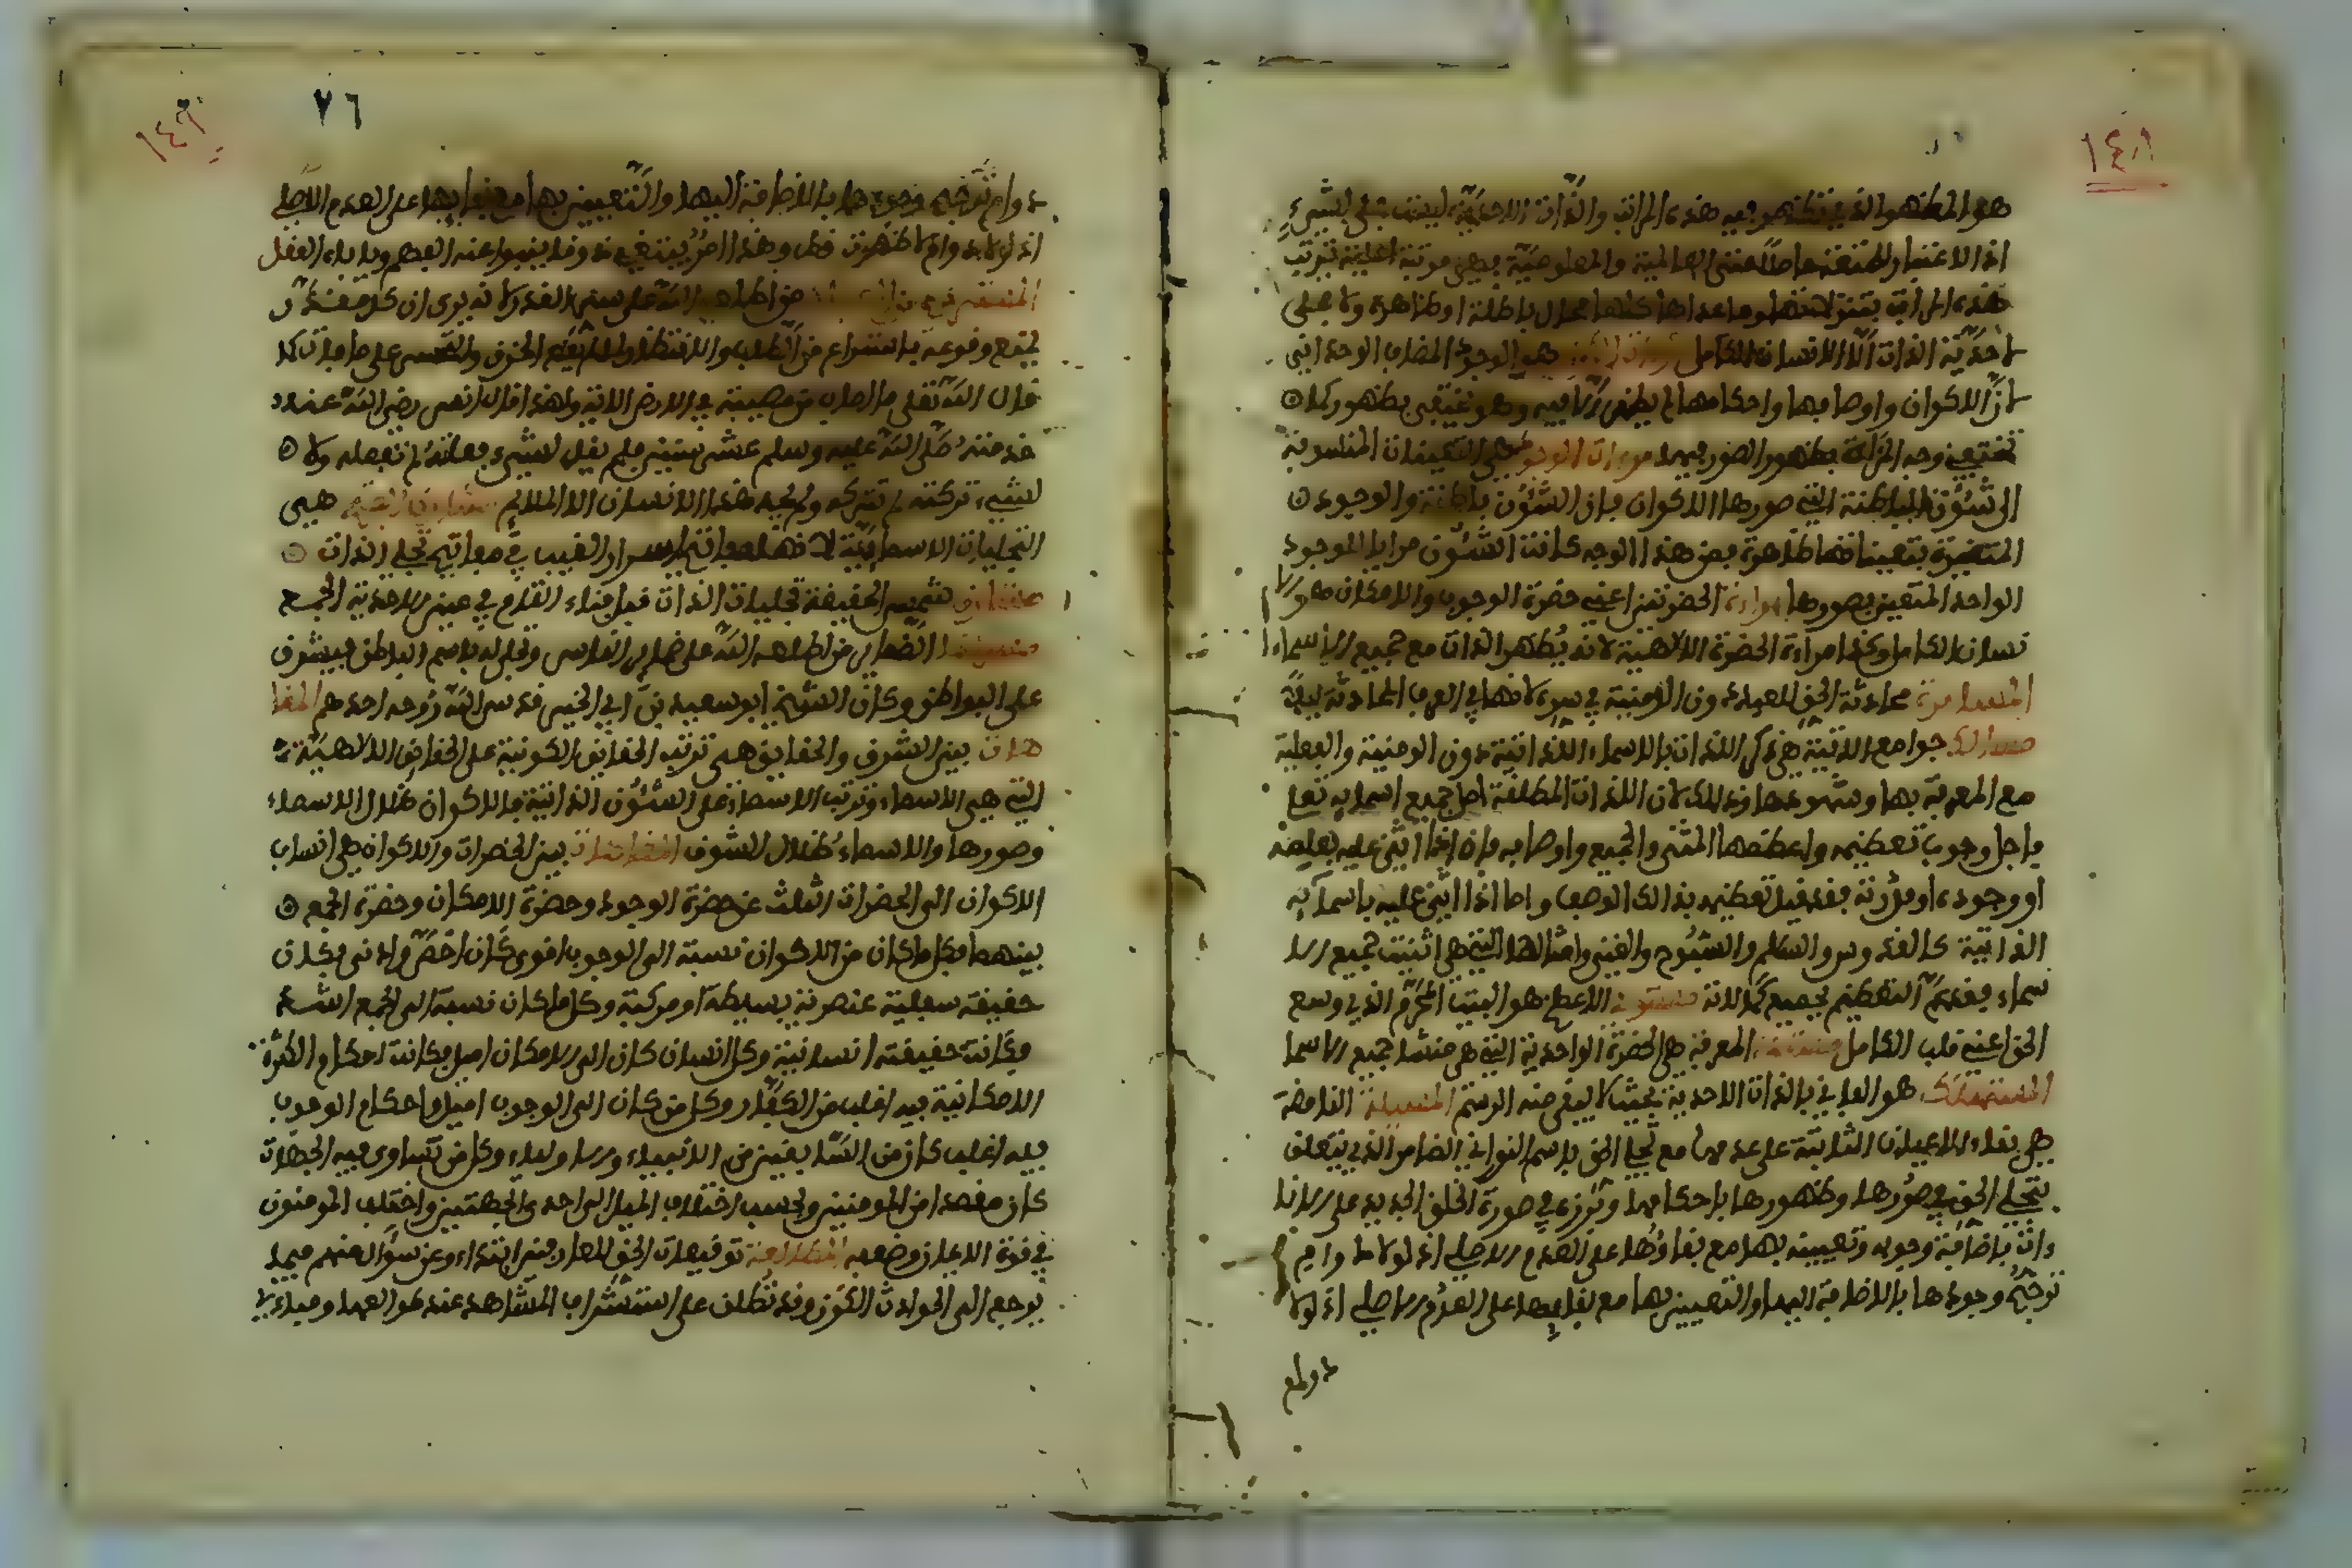 ١٤٨
هو المظهر الذي تظهر فيه هذه المراتب والذات الاحدية ليست بمجلى لشيء
اذ لا اعتبار للتعدد فيها اصلا حتى العالمية والمعلومية فهي مرتبة اعلى بترتب
هذه المراتب بتنزلاتها وما عداها كلها مجال باطنة او ظاهرة ولا مجلى
لاحدية الذات الا الانسان الكامل مرءات الكون هو الوجود المضاف الوحداني
لان الاكوان واوصافها واحكامها لم يظهر الا فيه وهو يختفي بظهورها كما
يختفي وجه المراة بظهور الصور فيها مرءات الوجود هي التعينات المنسوبة
الى الشؤن الباطنة التي صورها الاكوان فان الشؤن باطنة والوجود
المتعين بتعيناتها ظاهر فمن هذا الوجه كانت الشئون مرايا للوجود
الواحد المتعين بصورها مراءة الحضرتين اعني حضرة الوجوب والامكان هو الا
نسان الكامل وكذا مراءة الحضرة الالهية لانه يُظهر الذات مع جميع الاسماء
المسامرة محادثة الحق للعبد في سره لانها في العرف المحادثة ليلا
مسالك جوامع الاثنية هي ذكر الذات بالاسماء الذاتية دون الوصفية والفعلية
مع المعرفة بها وشهودها وذلك لان الذات المطلقة اصل جميع اسمايه تعا
فاجل وجوه تعظيمه واعظمها المثنى والجميع واوصافه فانه اذا اثنى عليه بعلمه
او وجوده او قدرته فقد قيد تعظيمه بذالك الوصف واما اذا اثنى عليه باسمآيه
الذاتية كالقدوس والسلام والسبوح والغني وامثالها التي هي اثنيت جميع الا
سماء فقد عمّ التعظيم بجميع كمالاته مستوى الاعظم هو البيت المحرّم الذي وسع
الحق اعني قلب الكامل مستند المعرفة هي الحضرة الواحدية التي هي منشا جميع الاسما
المستهلك هو الفاني في الذات الاحدية بحيث لا يبقى منه الرسم المسئلة الغامضة
هي بقاء الاعيان الثابتة على عدمها مع تجلي الحق باسم النور اي الظاهر الذي يتعلق
بتجلي الحق في صورها وظهورها باحكامها وبروزه في صورة الخلق الجديد على الانا
ءات باضافة وجوده وتعيينه بها مع بقاؤها على العدم الاصلي اذ لولا دوام
ترجيح وجودها بالاضافة اليها والتعيين بها مع بقايها على العدم الاصلي اذ لولا
دوام
١٤٩
٧٦
دوام ترجيح وجودها بالاضافة اليها والتعيين بها مع بقايها على العدم الاصلي
اذ لولا دوام لا ظهرت قط وهذا امر يقتضي ذوقا ينبوا عنه الفهم وياباه العقل
المستريح من اطلعه الله على سر القدر لانه يرى ان كل مقدر
يجب وقوعه باستراح من الطلب والانتظار والحزن والتحسر على ما فات كما
قال الله تعالى ما اصاب من مصيبة في الارض الاية ولهذا قال انس رضي الله عنه
خدمته صلى الله عليه وسلم عشر سنين فلم يقل لشيء فعلته لم تفعله ولا
لشيء تركته لم تتركه ولم يجد هذا الانسان الا الملايم هي
التجليات الاسمايية لانها مفاتيح اسرار الغيب في مفاتيح تجلي الذات
شمس الحقيقة تجليات الذات قبل فناء التام في عين الاحدية الجمع
الضماير من اطلعه الله على ضماير الناس وتجلى له باسم الباطن فيشرف
على البواطن وكان الشيخ ابو سعيد بن ابي الخير قدس الله روحه احدهم المضا
هات بين الشوف والحقايق هي ترتب الحقايق الكونية على الحقايق الالهية
التي هي الاسماء وترتب الاسماء على الشئون الذاتية فالاكوان ظلال الاسماء
وصورها والاسماء ظلال الشوف المضاهات بين الحضرات والاكوان هي انساب
الاكوان الى الحضرات الثلث عن حضرة الوجوب وحضرة الامكان وحضرة الجمع
بينهما فكل ما كان من الاكوان نسبة الى الوجوب اقوى كان اخص واذنى فكان
حقيقة سفلية عنصرية بسيطة او مركبة وكل ما كان نسبة الى الجمع اشد
فكانت حقيقته انسانية وكل انسان كان الى الامكان اميل فكانت احكام الكثرة
الامكانية فيه اغلب من الكفار وكل من كان الى الوجوب اميل واحكام الوجوب
فيه اغلب كان من السابقين من الانبياء والاولياء وكل من تساوى فيه الجهات
كان مقتصدا من المومنين وبحسب اختلاف الميل الى احدى الجهتين واختلف المومنون
في قوة الايمان وضعفه المطالعة توفيقات الحق للعارفين ابتداء وعن سؤال منهم فيما
يرجع الى الحوادث الكون وقد تطلق على استشراف المشاهدة عند طوالعها ومبادء